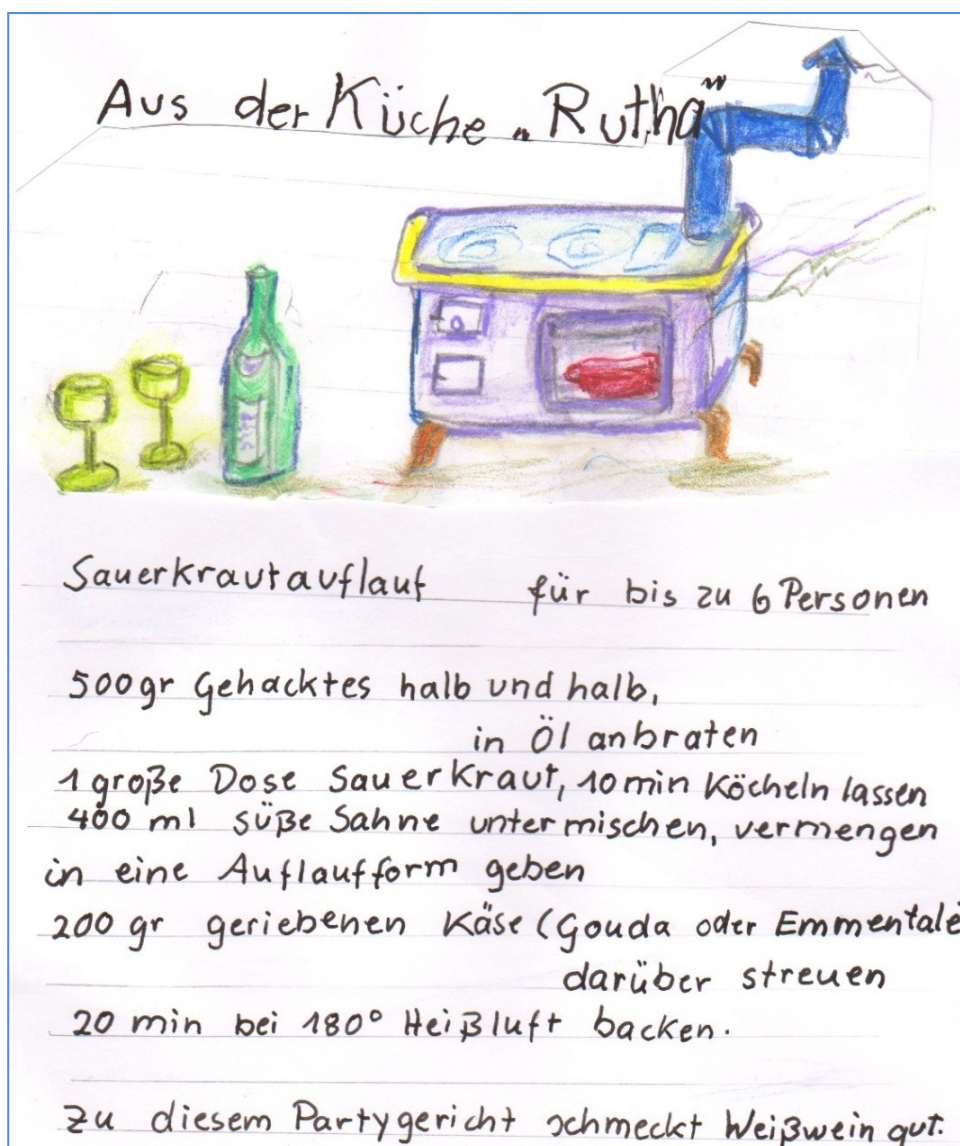 Aus der Küche „Rutha"
Sauerkrautauflauf für bis zu 6 Personen
500gr Gehacktes halb und halb,
in Öl anbraten
1 große Dose Sauerkraut, 10 min Köcheln lassen
400 ml süße Sahne untermischen, vermengen
in eine Auflaufform geben
200 gr geriebenen Käse (Gouda oder Emmentale
darüber streuen
20 min bei 180° Heißluft backen.
Zu diesem Partygericht schmeckt Weißwein gut.